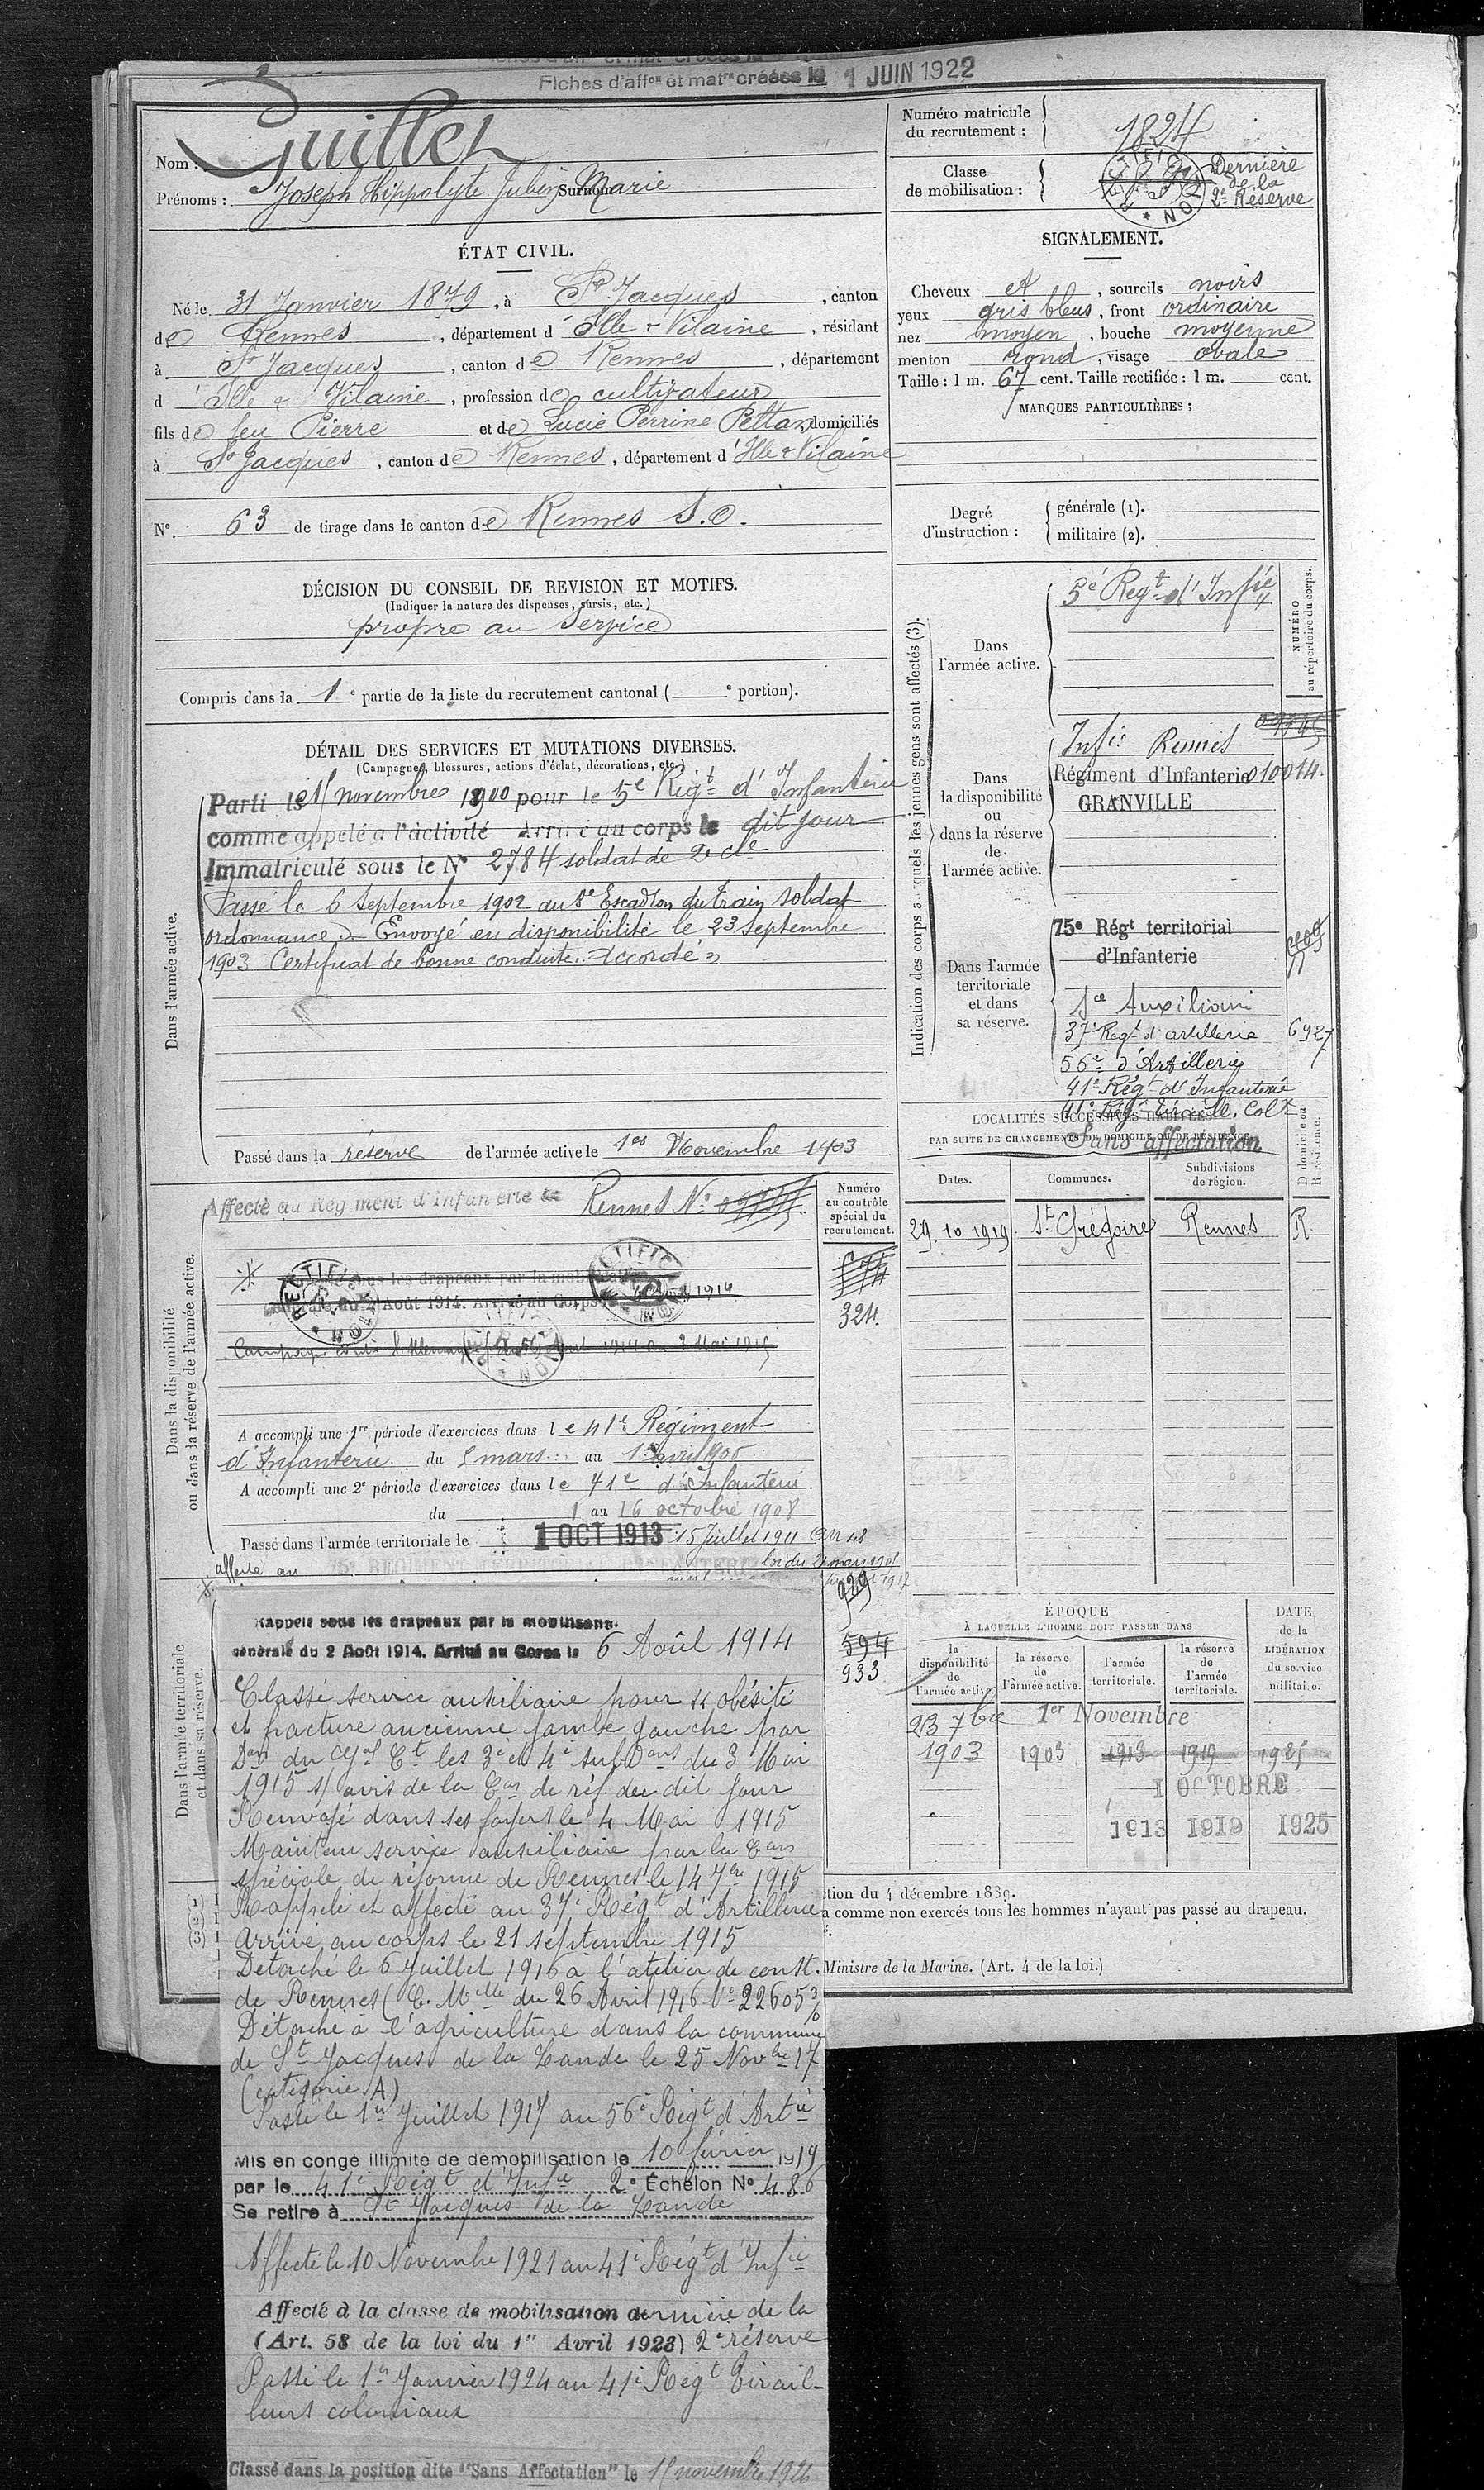 Fiches d'affon et matre créées le 1 JUIN 1922
Nom : Guillet
Prénoms : Joseph Hippolyte Surnom Marie
Numéro matricule du recrutement : 1824
Classe de mobilisation :
Dernière de la 2e Réserve
ÉTAT CIVIL.
Né le 31 Janvier 1879, à St Jacques, canton
de Rennes, département d'Ille & Vilaine, résidant
à St Jacques, canton de Rennes, département
d'Ille & Vilaine, profession de cultivateur
fils de feu Pierre et de Lucie Perrine Pettan, domiciliés
à St Jacques, canton de Rennes, département d'Ille & Vilaine
No. 63 de tirage dans le canton de Rennes S.O.
SIGNALEMENT.
Cheveux et, sourcils noirs
yeux gris bleus, front ordinaire
nez moyen, bouche moyenne
menton rond, visage ovale
Taille : 1 m. 67 cent. Taille rectifiée : 1 m. cent.
MARQUES PARTICULIÈRES :
Degré d'instruction :
générale (1).
militaire (2).
DÉCISION DU CONSEIL DE REVISION ET MOTIFS.
(Indiquer la nature des dispenses, sursis, etc.)
propre au service
Compris dans la 1e partie de la liste du recrutement cantonal ( e portion).
DÉTAIL DES SERVICES ET MUTATIONS DIVERSES.
(Campagnes, blessures, actions d'éclat, décorations, etc.)
Dans l'armée active.
Parti le novembre 1900 pour le 5e Régt d'Infanterie
comme appelé à l'activité Arrivé au corps le dit jour
Immatriculé sous le No 2784 soldat de 2e cle
Passé le 6 Septembre 1902 au Escadron du train soldat
ordonnance. Envoyé en disponibilité le 23 Septembre
1903 Certificat de bonne conduite "Accordé"
Passé dans la réserve de l'armée active le 1er Novembre 1903
Indication des corps auxquels les jeunes gens sont affectés (3).
NUMÉRO au répertoire du corps.
Dans l'armée active.
5e Régt d'Infie
Dans la disponibilité ou dans la réserve de l'armée active.
Infie Rennes
Régiment d'Infanterie 010014.
GRANVILLE
Dans l'armée territoriale et dans sa réserve.
75e Régt territorial
d'Infanterie
Sce Auxiliaire
37e Régt d'artillerie 6927
56e d'Artillerie
41e Régt d'Infanterie
41e Régt Tiraill. Colx
Sans affectation
LOCALITÉS SUCCESSIVES HABITÉES
PAR SUITE DE CHANGEMENTS DE DOMICILE OU DE RÉSIDENCE.
Dates. Communes. Subdivisions de région. D domicile ou R résidence.
29.10.1919 St Grégoire Rennes R.
Dans la disponibilité ou dans la réserve de l'armée active.
Affecté au Régiment d'Infanterie de Rennes No
Numéro au contrôle spécial du recrutement.
324.
sous les drapeaux par la mobilisation
générale du 2 Août 1914. Arrivé au Corps le 1914
Campagne contre l'Allemagne 1914 au 3 Mai 1915
A accompli une 1re période d'exercices dans le 41e Régiment
d'Infanterie du mars au
A accompli une 2e période d'exercices dans le 41e d'Infanterie
du 1 au 16 octobre 1908
Passé dans l'armée territoriale le 1 OCT 1913 15 Juillet 1911 art 48
loi du 21 mars 1905
affecté au 75e RÉGIMENT TERRITORIAL D'INFANTERIE
594
933
Dans l'armée territoriale et dans sa réserve.
Rappelé sous les drapeaux par la mobilisaon
générale du 2 Août 1914. Arrivé au Corps le 6 Août 1914
Classé service auxiliaire pour "obésité
et fracture ancienne jambe gauche par
Don du Gal Ct les 3e et 4e subons du 3 Mai
1915 s/ avis de la Con de réf. du dit jour
Renvoyé dans ses foyers le 4 Mai 1915
Maintenu service auxiliaire par la Con
spéciale de réforme de Rennes le 14 7bre 1915
Rappelé et affecté au 37e Régt d'Artillerie
Arrivé au corps le 21 septembre 1915
Détaché le 6 Juillet 1916 à l'atelier de const.
de Rennes (C. Mlle du 26 Avril 1916 No 22605 3/6
Détaché à l'agriculture dans la commune
de St Jacques de la Lande le 25 Novbre 17
(catégorie A)
Passé le 1er Juillet 1917 au 56e Régt d'Artie
Mis en congé illimité de démobilisation le 10 février 1919
par le 41e Régt d'Infie 2e Échelon No 486
Se retire à St Jacques de la Lande
Affecté le 10 Novembre 1921 au 41e Régt d'Infie
Affecté à la classe de mobilisation dernière de la
(Art. 58 de la loi du 1er Avril 1923) 2e réserve
Passé le 1er Janvier 1924 au 41e Régt Tirail-
leurs coloniaux
Classé dans la position dite "Sans Affectation" le novembre 1926
ÉPOQUE
À LAQUELLE L'HOMME DOIT PASSER DANS
DATE de la LIBÉRATION du service militaire.
la disponibilité de l'armée active. la réserve de l'armée active. l'armée territoriale. la réserve de l'armée territoriale.
23 7bre 1er Novembre
1903 1903 1913 1919 1925
1 OCTOBRE
1913 1919 1925
(1)
(2)
(3)
ction du 4 décembre 1889.
a comme non exercés tous les hommes n'ayant pas passé au drapeau.
Ministre de la Marine. (Art. 4 de la loi.)